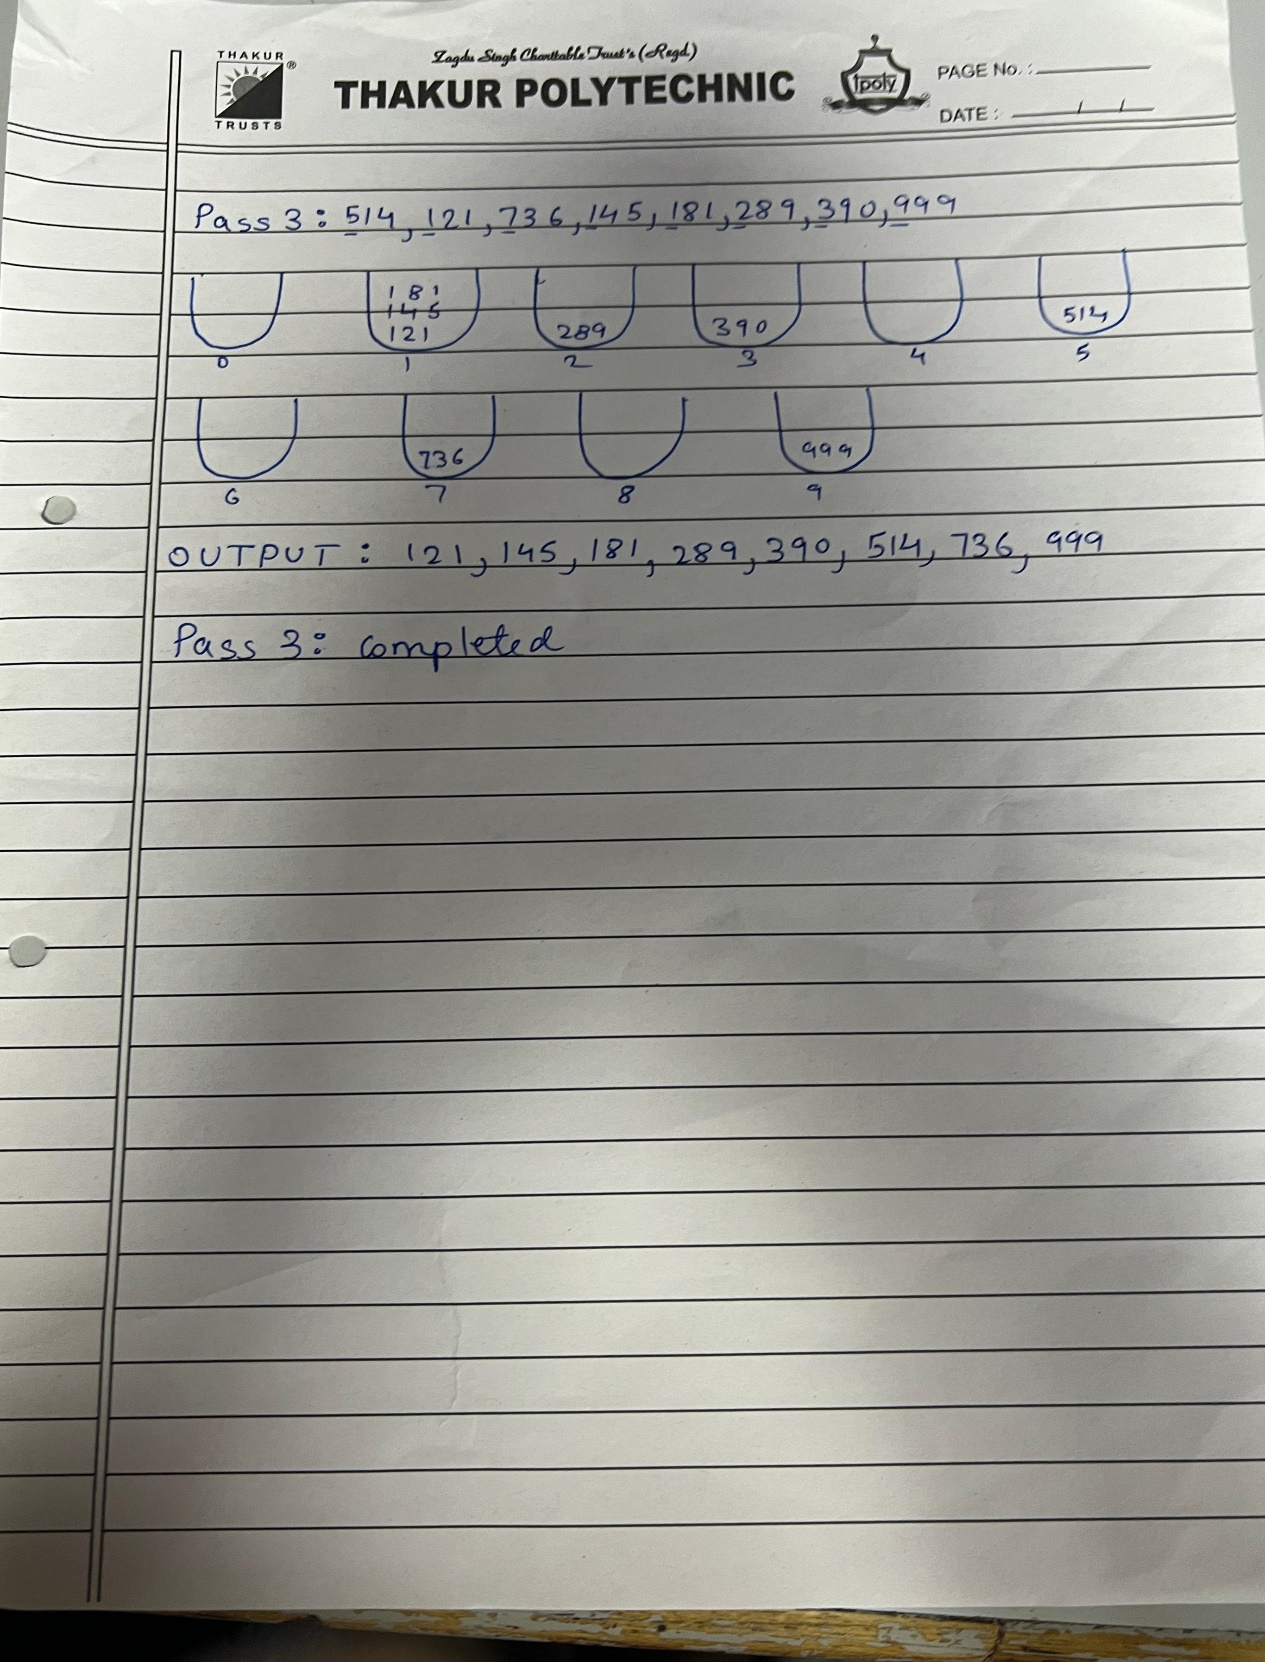 THAKUR
TRUSTS
Zagdu Singh Charitable Trust's (Regd.)
THAKUR POLYTECHNIC
tpoly
PAGE No. :
DATE : / /
Pass 3: 514, 121, 736, 145, 181, 289, 390, 999
181
145
121 289 390 514
0 1 2 3 4 5
736 999
6 7 8 9
OUTPUT : 121, 145, 181, 289, 390, 514, 736, 999
Pass 3: completed